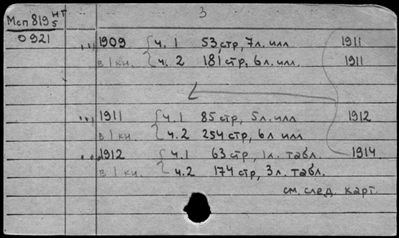 3
Мсп 819 НГ
5
0921
1909 ч. 1 53 стр, 7 л. илл 1911
в 1 кн. ч. 2 181 стр, 6 л. илл. 1911
1911 ч. 1 85 стр, 5 л. илл 1912
в 1 кн. ч. 2 254 стр, 6 л илл
1912 ч. 1 63 стр, 1 л. табл. 1914
в 1 кн. ч. 2 174 стр, 3 л. табл.
см. след. карт.